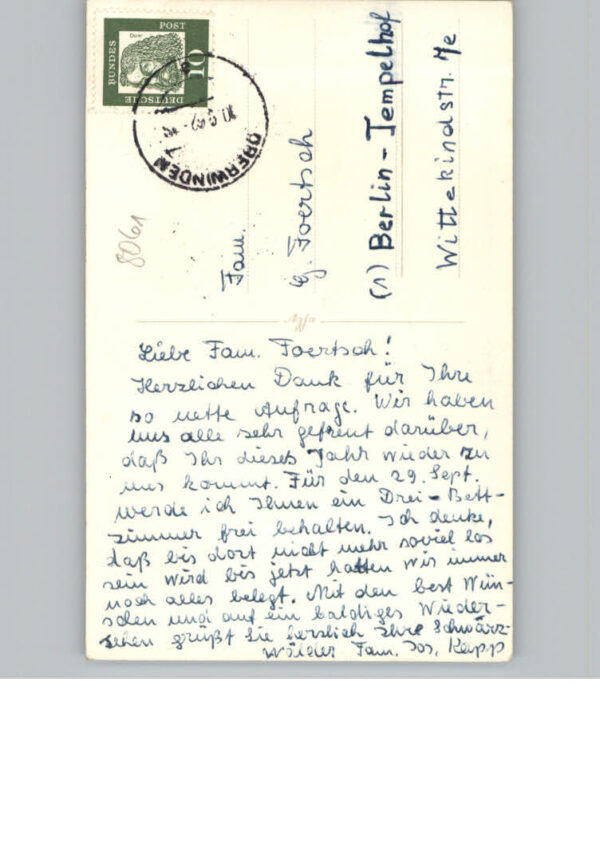 Dürer
DEUTSCHE
BUNDES
POST
10
OBERWINDEN
8061
Fam.
G. Foertsch
(1) Berlin-Tempelhof
Wittekindstr. 7e
Liebe Fam. Foertsch!
Herzlichen Dank für Ihre
so nette Aufrage. Wir haben
uns alle sehr gefreut darüber,
daß Ihr dieses Jahr wieder zu
uns kommt. Für den 29. Sept.
werde ich Ihnen ein Drei-Bett-
zimmer frei behalten. Ich denke,
daß bis dort nicht mehr soviel los
sein wird bis jetzt hatten wir immer
noch alles belegt. Mit den best Wün-
schen und auf ein baldiges Wieder-
sehen grüßt Sie herzlich Ihre Schwarz-
wälder Fam. Jos. Rapp